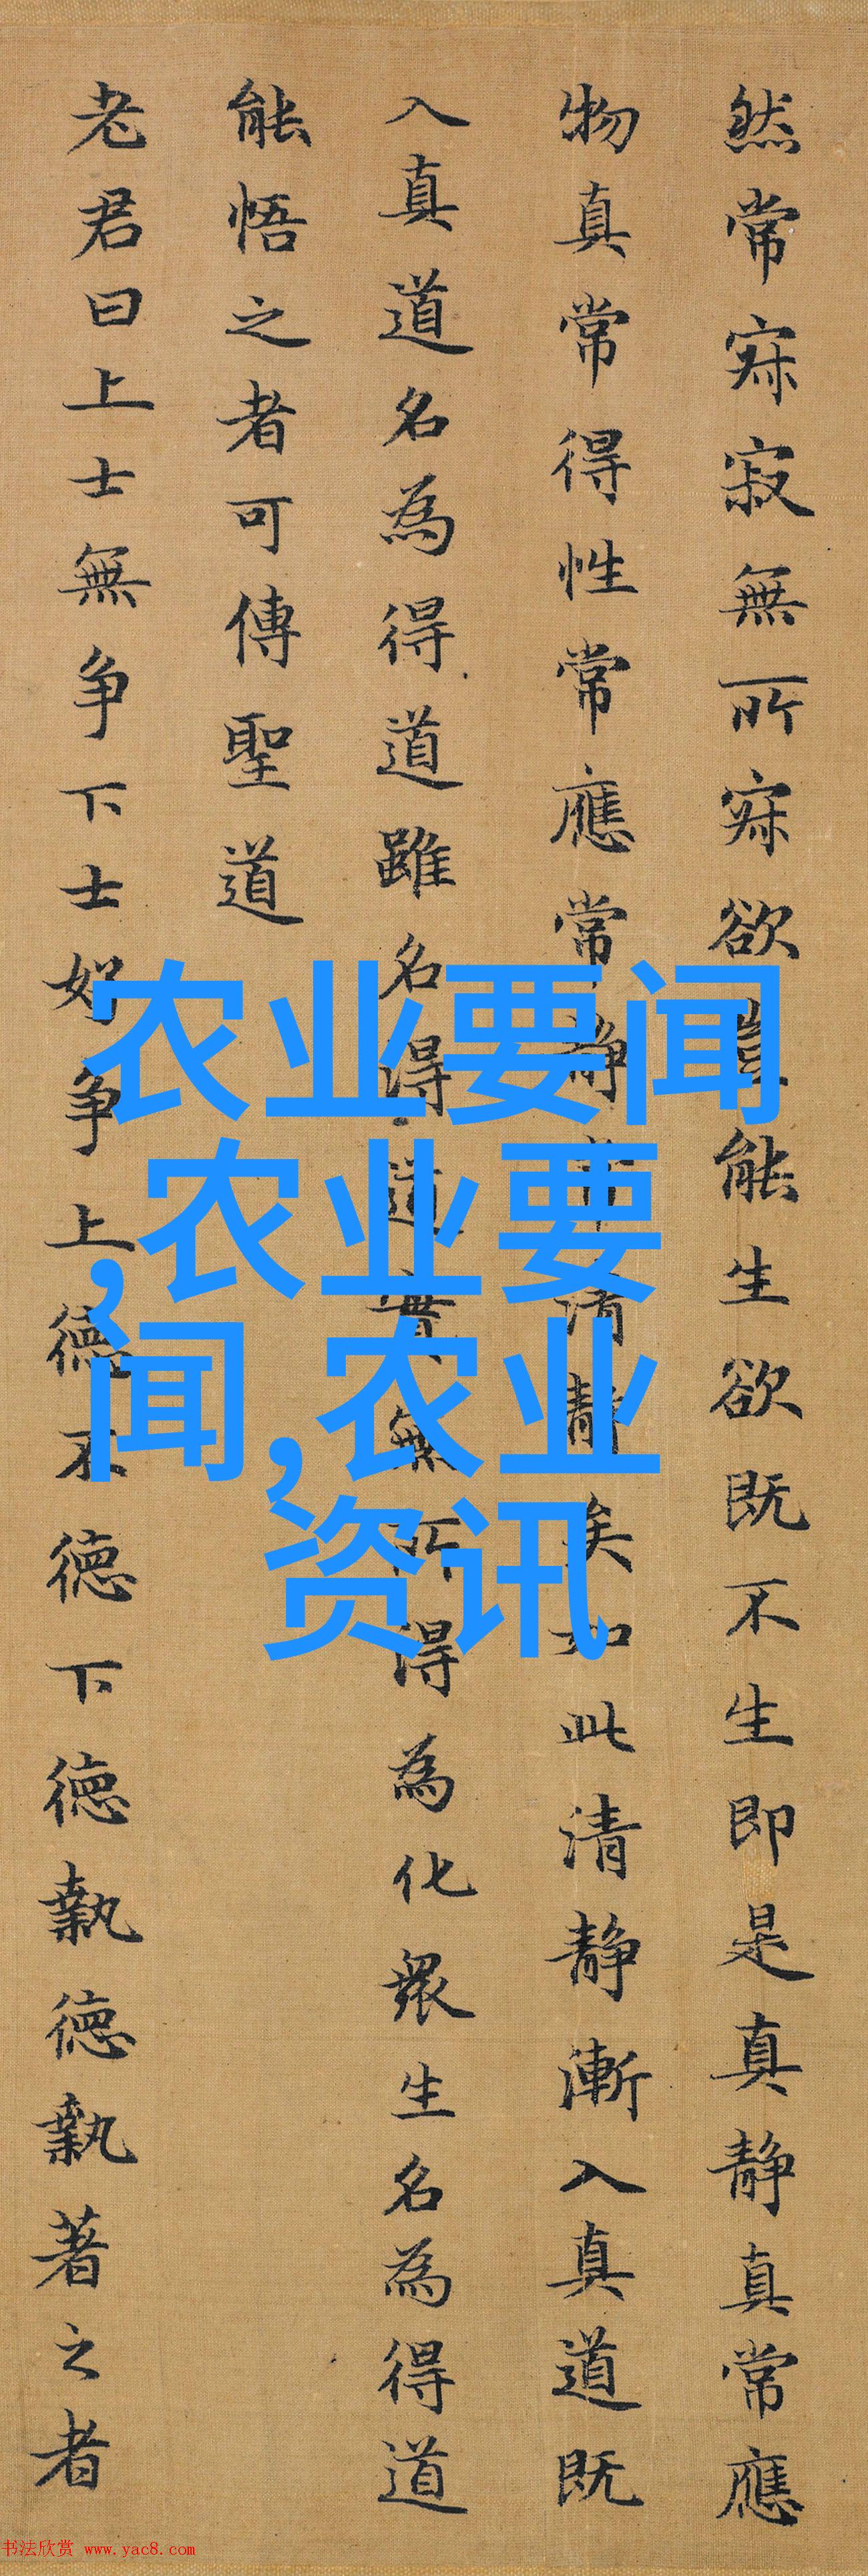 然常寂寂無所寂欲豈能生欲既不生即是真静真常應
物真常得性常應常静常清静矣如此清静漸入真道既
入真道名為得道雖名得道實無所得為化衆生名為得道
能悟之者可傳聖道
老君曰上士無争下士好争上德不德下德執德執著之者
农业要闻
,农业要
闻,农业
资讯
书法欣赏 www.yac8.com